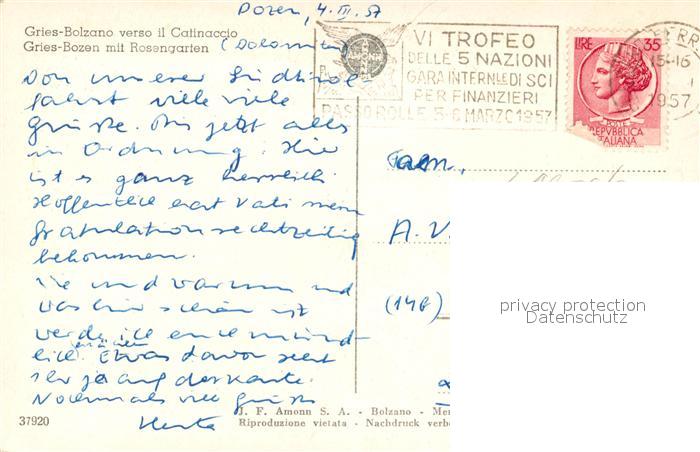 Bozen, 4.III.57
Gries-Bolzano verso il Catinaccio
Gries-Bozen mit Rosengarten (Dolomiten)
Von unserer Südtirol
fahrt viele viele
Grüsse. Bis jetzt alles
in Ordnung. Hier
ist es ganz herrlich
Hoffentlich hat Vati mein
Gratulation rechtzeitig
bekommen.
Wie und warum und
was hier schön ist
werde ich euch münd
lich erzählen. Etwas davon seht
Ihr ja auf der Karte.
Nochmals viele Grüsse
Herta
VI TROFEO
DELLE 5 NAZIONI
GARA INTERN.LE DI SCI
PER FINANZIERI
PASSO ROLLE 5-6 MARZO 1957
LIRE 35
POSTE
REPVBBLICA
ITALIANA
15-16
1957
A. V
(14b)
privacy protection
Datenschutz
37920
J. F. Amonn S. A. - Bolzano - Mer
Riproduzione vietata - Nachdruck verbo